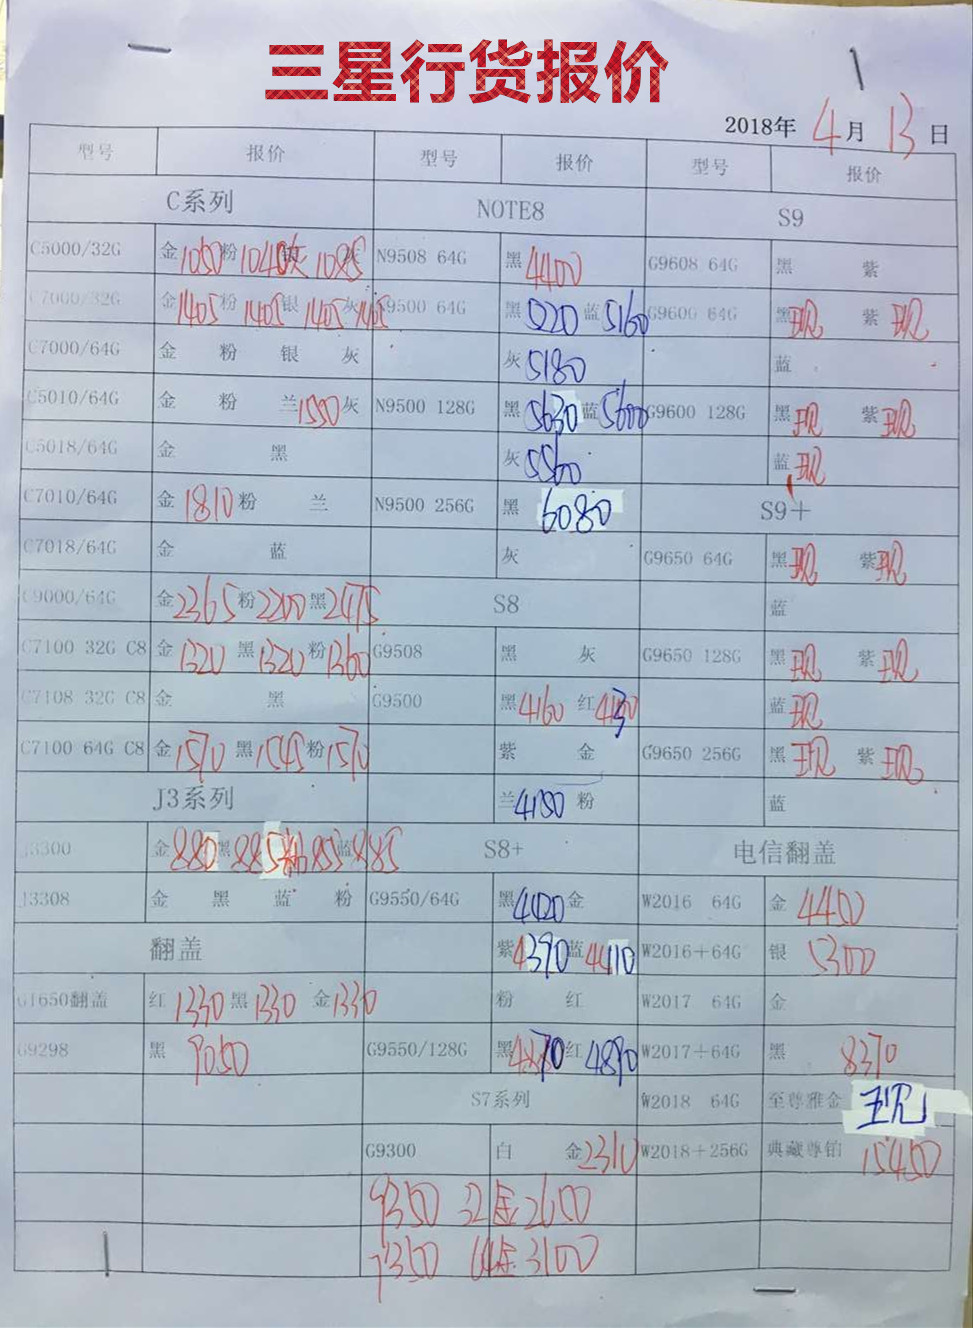 三星行货报价
2018年 4月 13日
型号 报价 型号 报价 型号 报价
C系列 NOTE8 S9
C5000/32G 金1050 粉1040 灰1085 N9508 64G 黑4400 G9608 64G 黑 紫
C7000/32G 金1405 粉1405 银1405 灰1405 N9500 64G 黑5220 蓝5160 G9600 64G 黑现 紫现
C7000/64G 金 粉 银 灰 灰5180 蓝
C5010/64G 金 粉 兰1550 灰 N9500 128G 黑5630 蓝5600 G9600 128G 黑现 紫现
C5018/64G 金 黑 灰5560 蓝现
C7010/64G 金1810 粉 兰 N9500 256G 黑 6080 S9+
C7018/64G 金 蓝 灰 G9650 64G 黑现 紫现
C9000/64G 金2365 粉2200 黑2475 S8 蓝
C7100 32G C8 金1320 黑1320 粉1360 G9508 黑 灰 G9650 128G 黑现 紫现
C7108 32G C8 金 黑 G9500 黑4160 红 蓝现
C7100 64G C8 金1570 黑1545 粉1570 紫 金 G9650 256G 黑现 紫现
J3系列 兰4180 粉 蓝
J3300 金880 黑885 粉 蓝885 S8+ 电信翻盖
J3308 金 黑 蓝 粉 G9550/64G 黑4420 金 W2016 64G 金4450
翻盖 紫4390 蓝4410 W2016+64G 银5300
G1650翻盖 红1330 黑1330 金1330 粉 红 W2017 64G 金
G9298 黑9050 G9550/128G 黑 红4890 W2017+64G 黑8370
S7系列 W2018 64G 至尊雅金 现
G9300 白 金2310 W2018+256G 典藏尊铂 15450
9350 32金2600
9350 64金3100